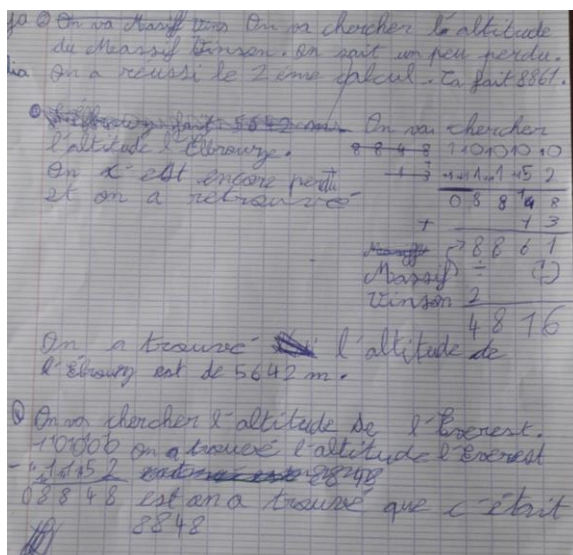 On va chercher l'altitude
du Massif Vinson. on sait un peu perdu.
lia On a réussi le 2 ème calcul. Ca fait 8861.
fait 5642 m. On va chercher
l'altitude l'Elbrouze.
8 8 4 8 10000
On c'est encore perdu - 1152
et on a retrouvé 08848
+ 13
8861
Massif ÷
Vinson 2
4816
On a trouvé l'altitude de
l'Elbrouz est de 5642 m.
On va chercher l'altitude de l'Everest.
10000 on a trouvé l'altitude l'Everest
- 1152 8848
08848 est on a trouvé que c'était
8848